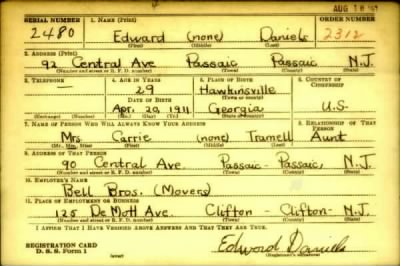 AUG 18
SERIAL NUMBER 1. NAME (Print) ORDER NUMBER
2480 Edward (none) Daniels 2312
(First) (Middle) (Last)
2. ADDRESS (Print)
92 Central Ave Passaic Passaic N.J.
(Number and street or R. F. D. number) (Town) (County) (State)
3. TELEPHONE 4. AGE IN YEARS 5. PLACE OF BIRTH 6. COUNTRY OF CITIZENSHIP
— 29 Hawkinsville
(Town or county)
DATE OF BIRTH
Apr. 20, 1911 Georgia U.S.
(Exchange) (Number) (Mo.) (Day) (Yr.) (State or country)
7. NAME OF PERSON WHO WILL ALWAYS KNOW YOUR ADDRESS 8. RELATIONSHIP OF THAT PERSON
Mrs. Carrie (none) Tramell Aunt
(Mr., Mrs., Miss) (First) (Middle) (Last)
9. ADDRESS OF THAT PERSON
90 Central Ave. Passaic - Passaic, N.J.
(Number and street or R. F. D. number) (Town) (County) (State)
10. EMPLOYER'S NAME
Bell Bros. (Movers)
11. PLACE OF EMPLOYMENT OR BUSINESS
125 De Mott Ave. Clifton - Clifton - N.J.
(Number and street or R. F. D. number) (Town) (County) (State)
I AFFIRM THAT I HAVE VERIFIED ABOVE ANSWERS AND THAT THEY ARE TRUE.
REGISTRATION CARD
D. S. S. Form 1
Edward Daniels
(Registrant's signature)